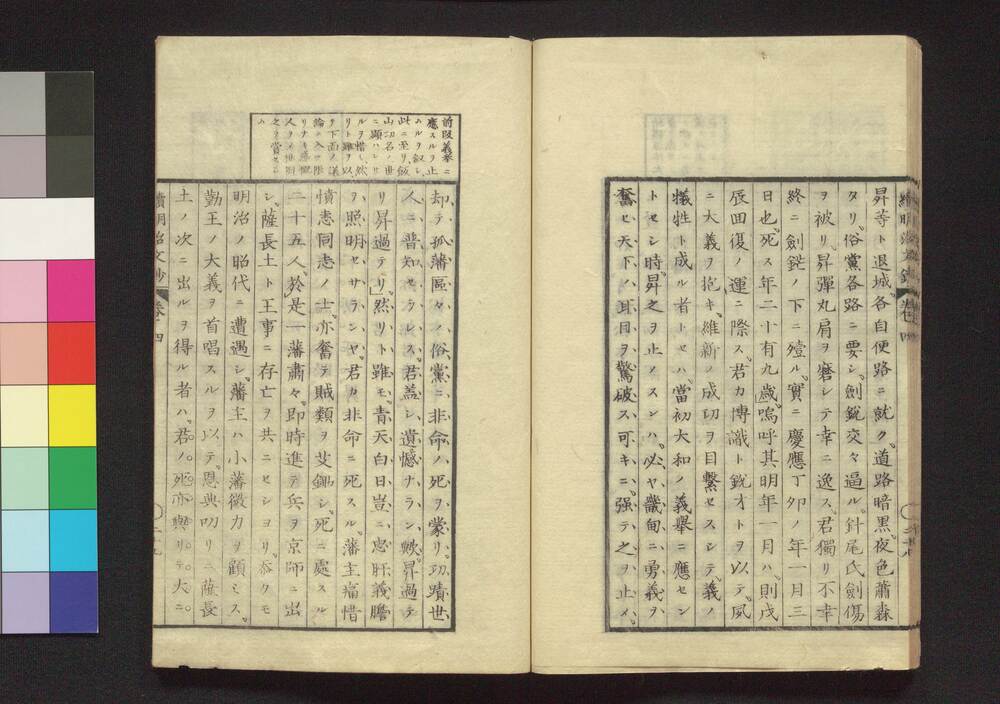 昇等ト退城各自便路ニ就ク道路暗黒夜色蕭森
タリ俗黨各路ニ要シ劍銃交々逼ル針尾氏劍傷
ヲ被リ昇彈丸肩ヲ磨シテ幸ニ逸ス君獨リ不幸
終ニ劍銃ノ下ニ殪ル實ニ慶應丁卯ノ年一月三
日也死ス年二十有九歳嗚呼其明年一月ハ則戊
辰回復ノ運ニ際ス君カ博識ト鋭才トヲ以テ夙
ニ大義ヲ抱キ維新ノ成功ヲ目繋セスシテ義ノ
犠牲ト成ル者トセハ當初大和ノ義舉ニ應セン
トセシ時昇之ヲ止メスンハ必ヤ畿甸ニ勇義ヲ
奮ヒ天下ノ耳目ヲ驚破ス可キニ强テ之ヲ止メ
續明治文鈔 卷十四
前段義舉ニ
應スルヲ止
ムルヲ叙シ
此ニ至リ
山功名ノ世
ニ顯ハレサ
ルヲ惜シ然
リト雖ヲ以
テ下面ノ議
却テ孤藩區々ノ俗黨ニ非命ノ死ヲ蒙リ功蹟世
人ニ普知セラレス君蓋シ遺憾ナラン歟昇過テ
リ昇過テリ然リト雖モ靑天白日豈ニ忠肝義膽
ヲ照明セサランヤ君カ非命ニ死スル藩主痛惜
憤恚同志ノ士亦奮テ賊類ヲ艾鋤シ死ニ處スル
二十五人於是一藩肅々即時進テ兵ヲ京師ニ出
シ薩長土ト王事ニ存亡ヲ共ニセシヨリ忝クモ
明治ノ昭代ニ遭遇シ藩主ハ小藩微力ヲ顧ミス
勤王ノ大義ヲ首唱スルヲ以テ恩典叨リニ薩長
土ノ次ニ出ルヲ得ル者ハ君ノ死亦與リテ大ニ
續明治文鈔 卷十四